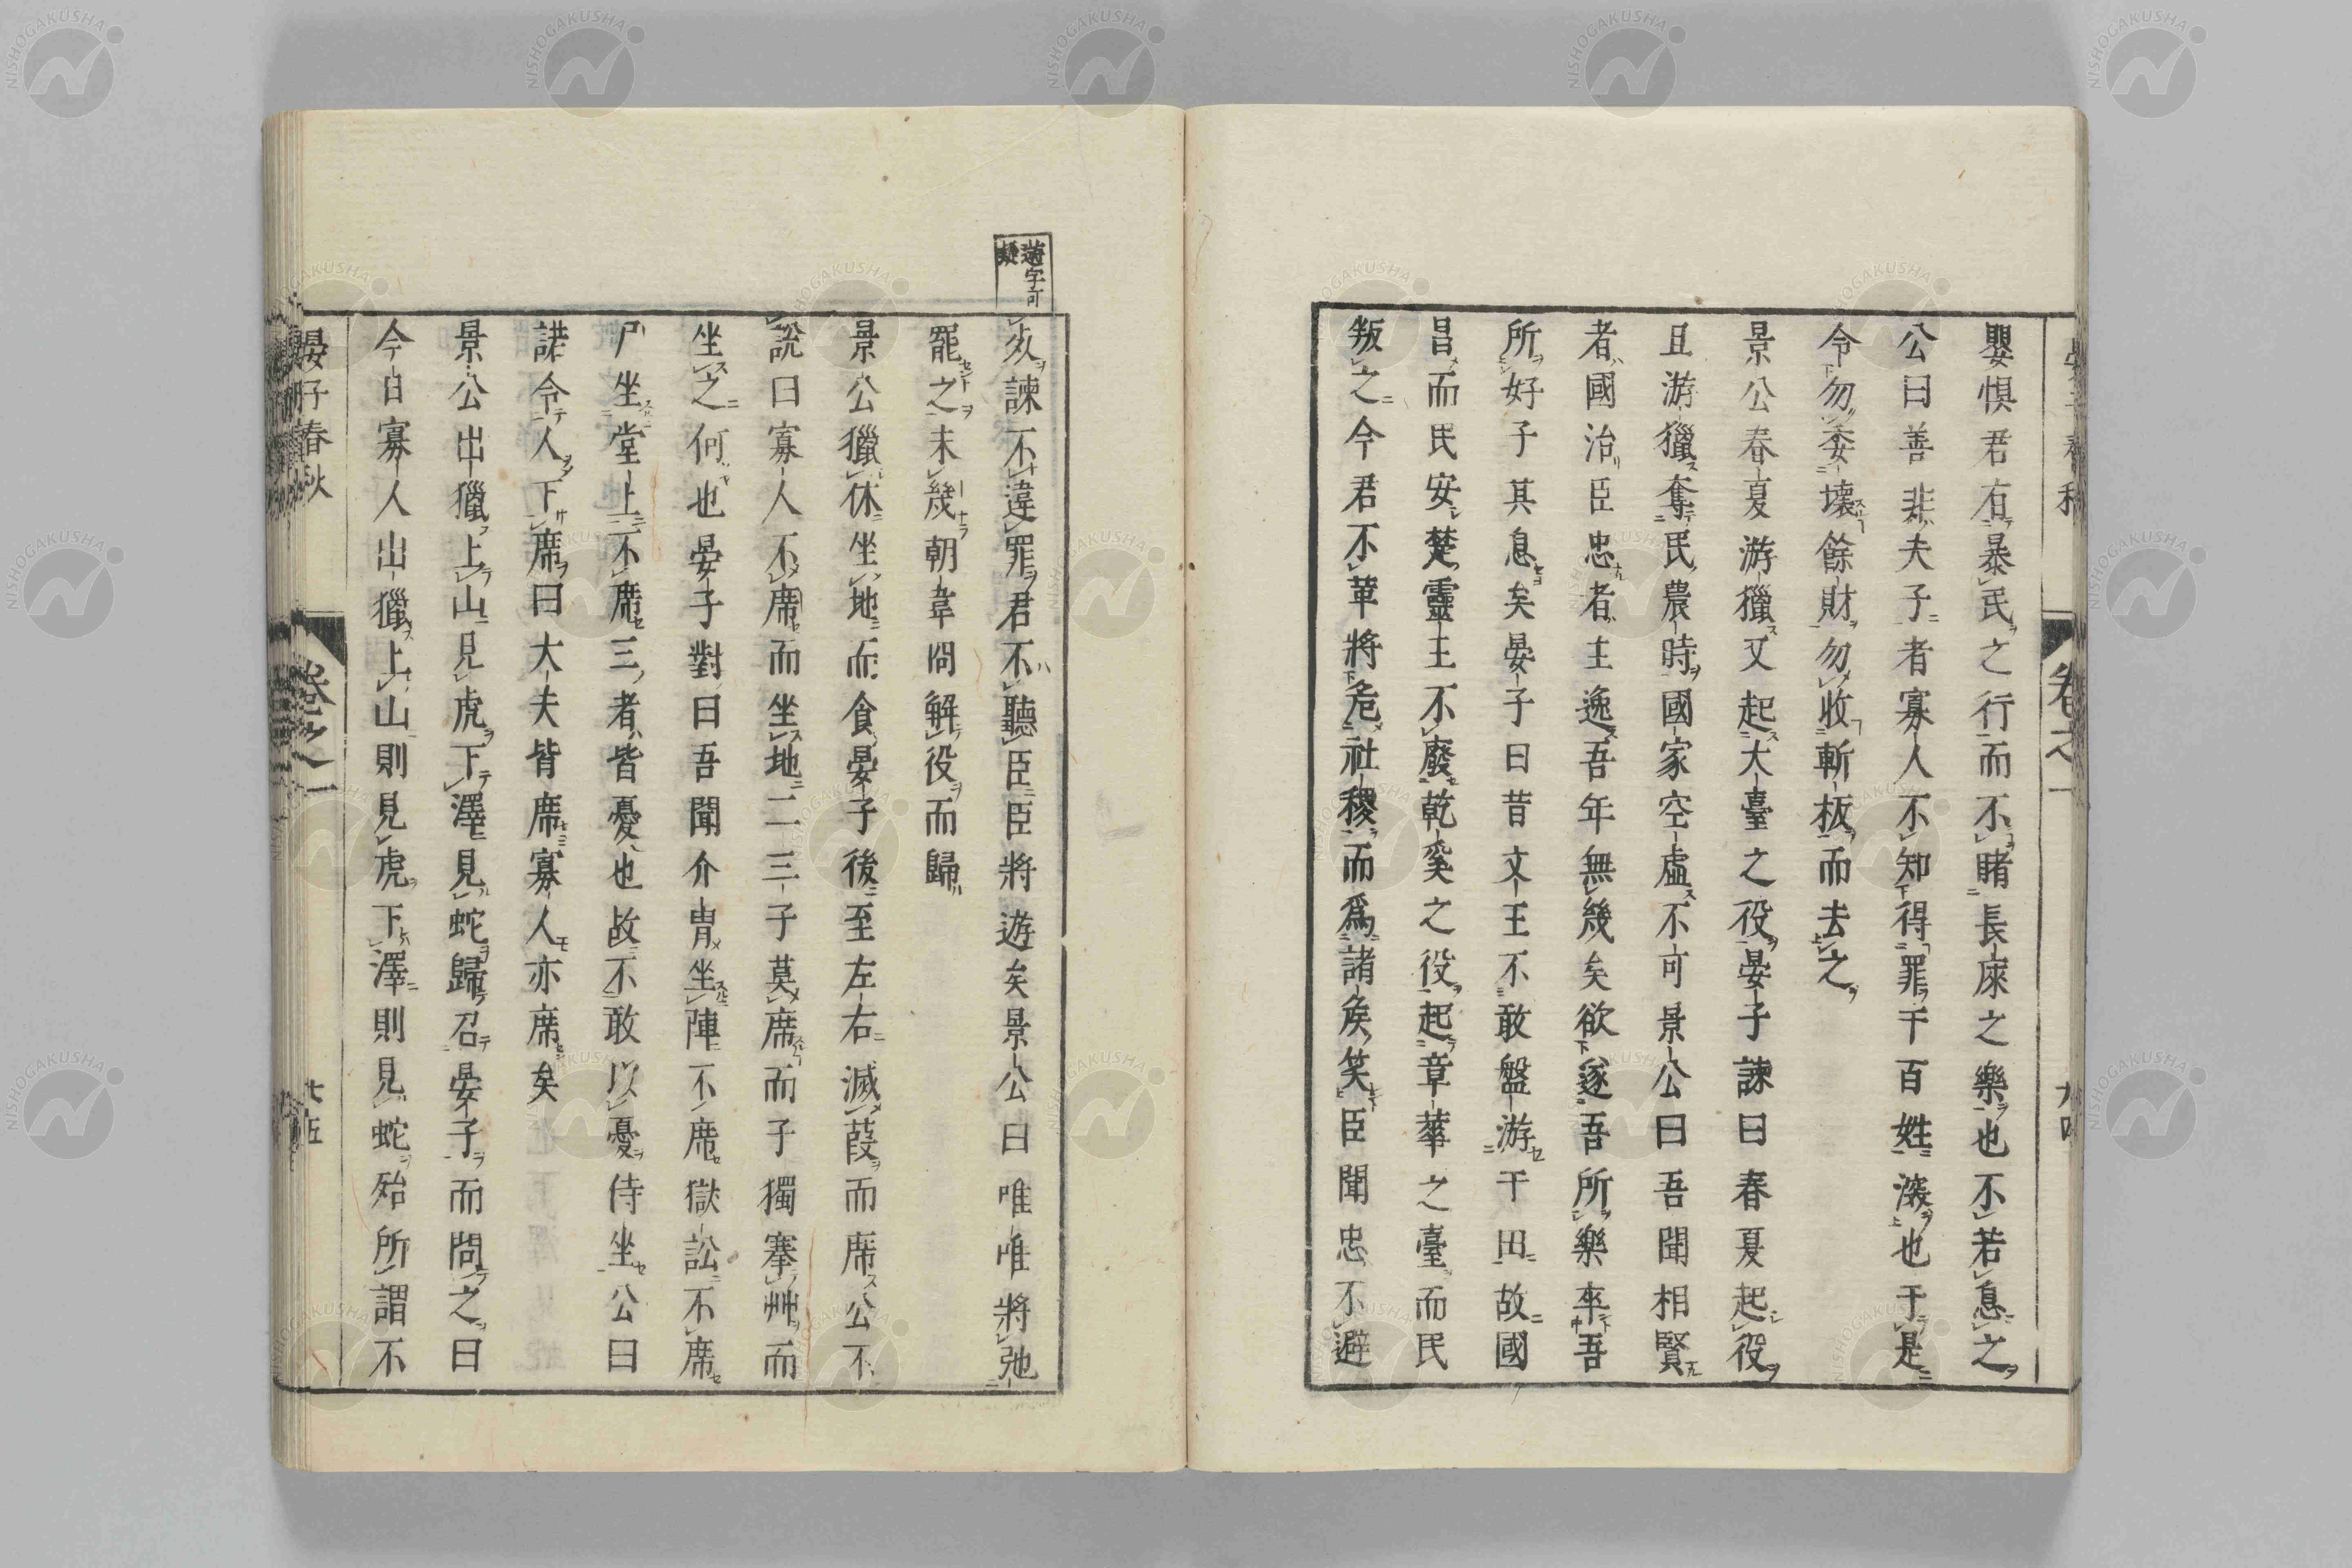 嬰懼君有暴民之行而不睹長庲之樂也不若息之
公曰善非夫子者寡人不知得罪于百姓深也于是
令勿委壞餘財勿收斬板而去之
景公春夏游獵又起大臺之役晏子諫曰春夏起役
且游獵奪民農時國家空虛不可景公曰吾聞相賢
者國治臣忠者主逸吾年無幾矣欲遂吾所樂卒吾
所好子其息矣晏子曰昔文王不敢盤游于田故國
昌而民安楚靈王不廢乾奚之役起章華之臺而民
叛之今君不革將危社稷而爲諸矦笑臣聞忠不避
卷之一
遊字可
疑
死諫不違罪君不聽臣臣將遊矣景公曰唯唯將弛
罷之未幾朝韋冏解役而歸
景公獵休坐地而食晏子後至左右滅葭而席公不
說曰寡人不席而坐地二三子莫席而子獨搴艸而
坐之何也晏子對曰吾聞介冑坐陣不席獄訟不席
尸坐堂上不席三者皆憂也故不敢以憂侍坐公曰
諾令人下席曰大夫皆席寡人亦席矣
景公出獵上山見虎下澤見蛇歸召晏子而問之曰
今日寡人出獵上山則見虎下澤則見蛇殆所謂不
晏子春秋
卷之一